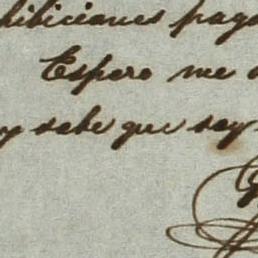 hibiciones pag
Espero me
y sabe que soy